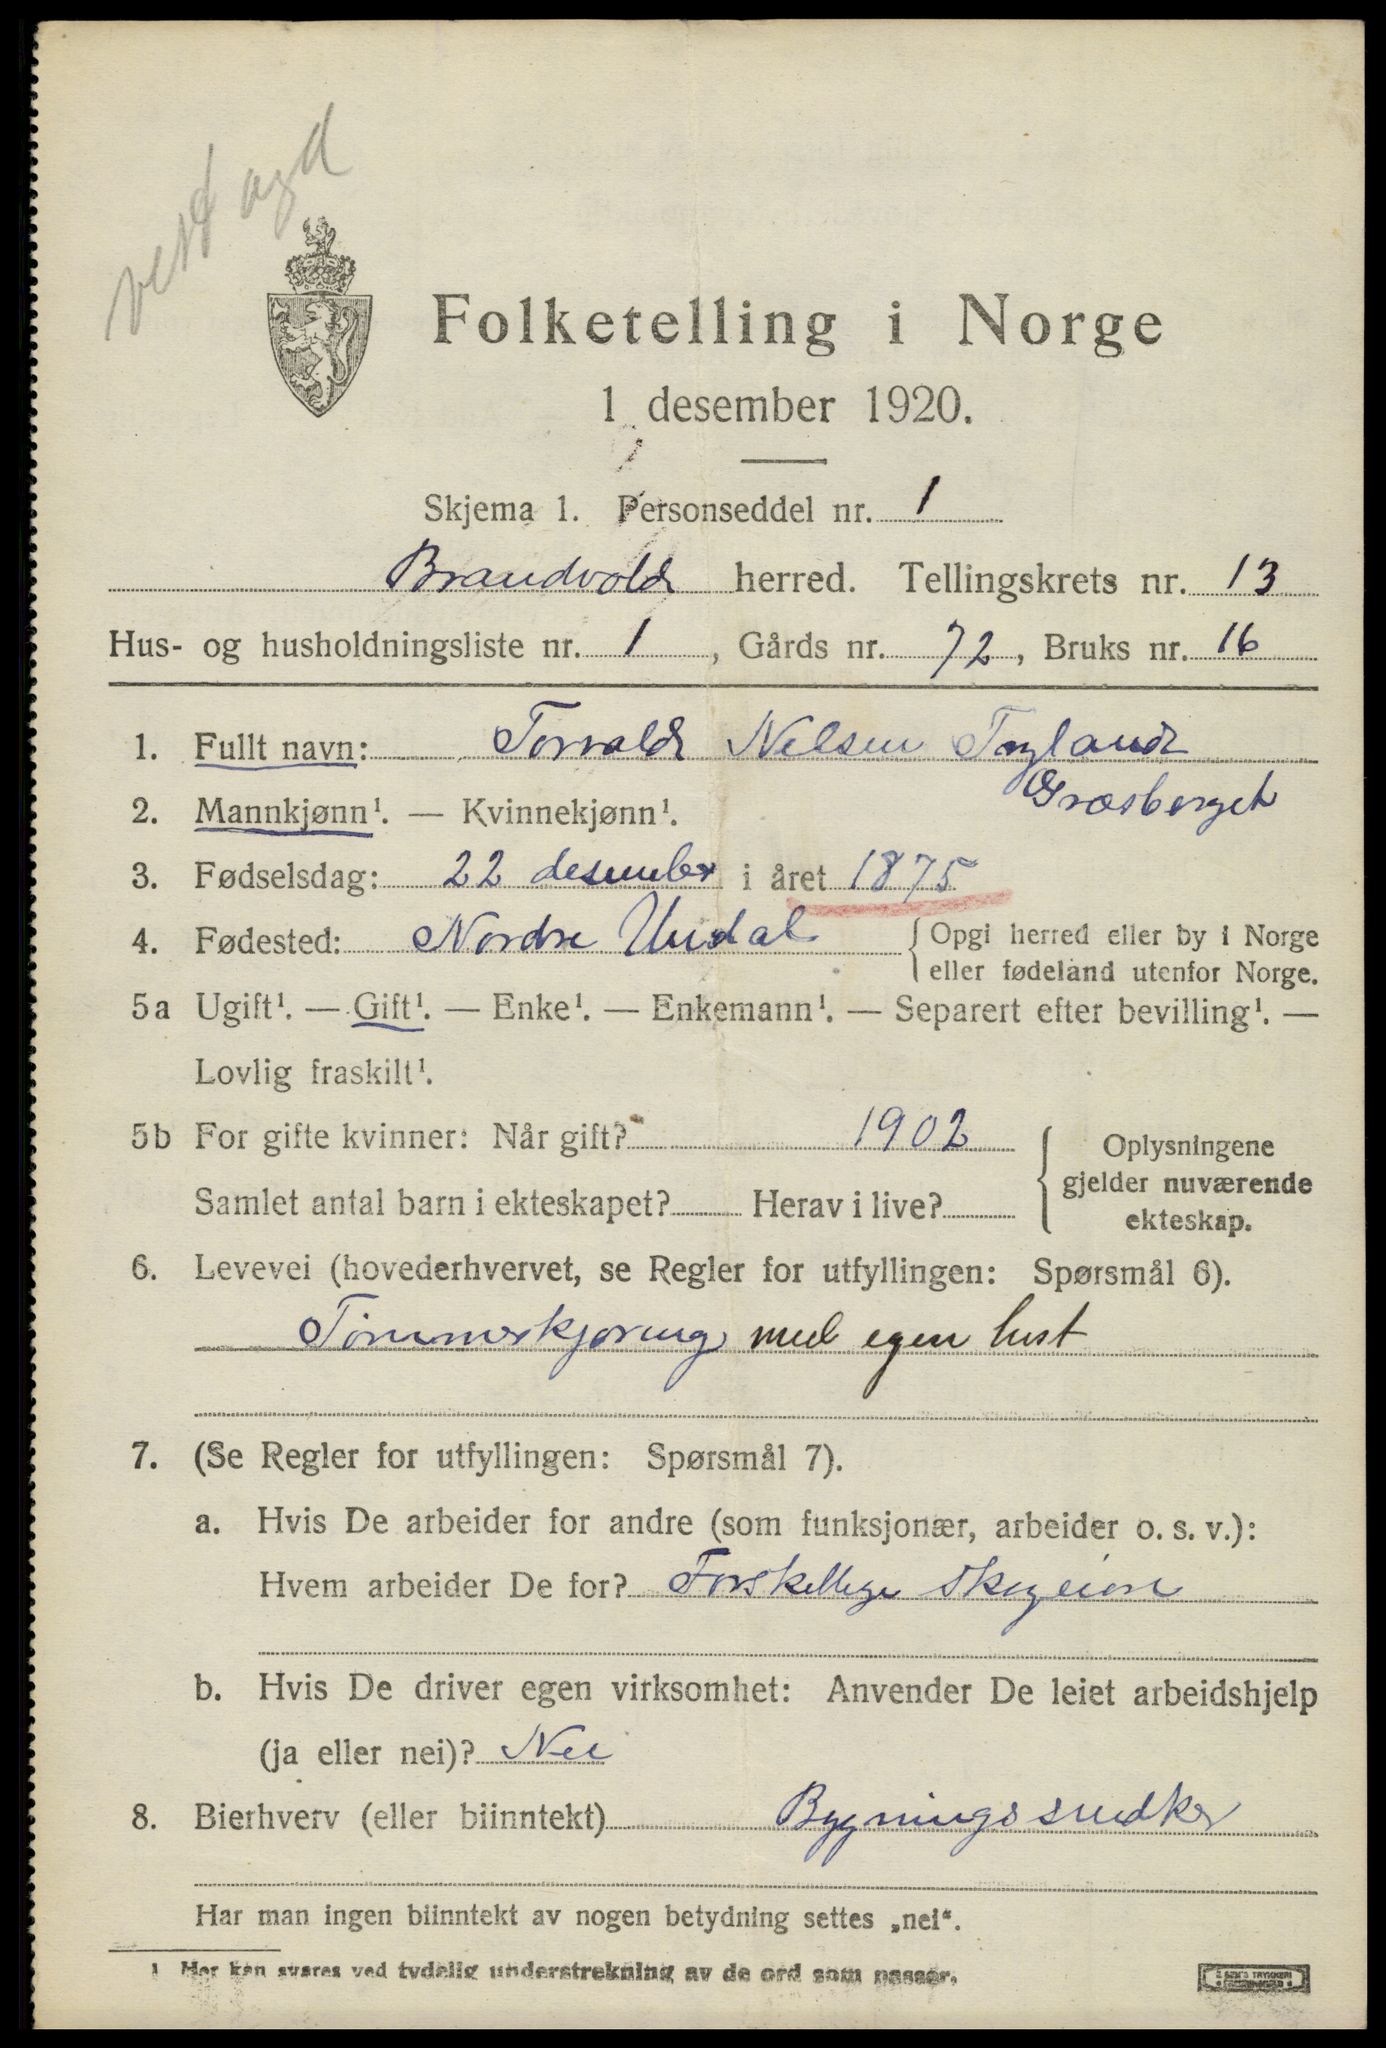 vest agd
Folketelling i Norge
1 desember 1920.
Skjema 1. Personseddel nr. 1
Brandvold herred. Tellingskrets nr. 13
Hus- og husholdningsliste nr. 1, Gårds nr. 72, Bruks nr. 16
1. Fullt navn: Torvald Nelsen Tryland
Græsberget
2. Mannkjønn¹. — Kvinnekjønn¹.
3. Fødselsdag: 22 desember i året 1875
4. Fødested: Nordre Undal { Opgi herred eller by i Norge
eller fødeland utenfor Norge.
5a Ugift¹. — Gift¹. — Enke¹. — Enkemann¹. — Separert efter bevilling¹. —
Lovlig fraskilt¹.
5b For gifte kvinner: Når gift? 1902 { Oplysningene
gjelder nuværende
Samlet antal barn i ekteskapet? Herav i live?
ekteskap.
6. Levevei (hovederhvervet, se Regler for utfyllingen: Spørsmål 6).
Tømmerkjøring med egen hest
7. (Se Regler for utfyllingen: Spørsmål 7).
a. Hvis De arbeider for andre (som funksjonær, arbeider o. s. v.):
Hvem arbeider De for? Forskellige skogeiere
b. Hvis De driver egen virksomhet: Anvender De leiet arbeidshjelp
(ja eller nei)? Nei
8. Bierhverv (eller biinntekt) Bygningssnedker
Har man ingen biinntekt av nogen betydning settes „nei“.
1 Her kan svares ved tydelig understrekning av de ord som passer.